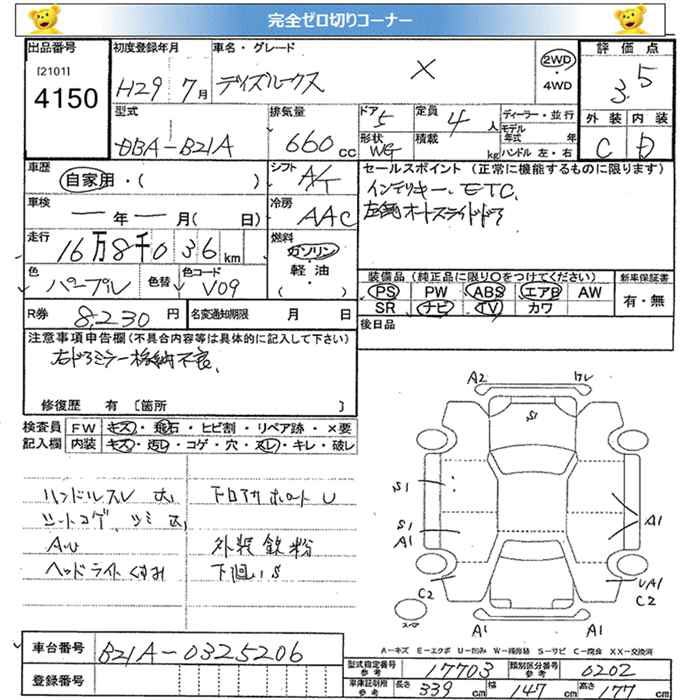 完全ゼロ切りコーナー
出品番号
[2101]
4150
初度登録年月
H29 7月
車名・グレード
デイズルークス X
2WD
・
4WD
評価点
3.5
外装 内装
C D
型式
DBA-B21A
排気量
660 cc
ドア 5
形状 WG
定員 4 人
積載 kg
ディーラー・並行
モデル年式 年
ハンドル 左・右
車歴
自家用・( )
シフト A/T
車検
ー年ー月( 日)
冷房 AAC
セールスポイント (正常に機能するものに限ります)
インテリキー、ETC
左側オートスライドドア
走行
16万8千036km
燃料
ガソリン
・
軽油
・
( )
色
パープル
色替
色コード
V09
装備品(純正品に限り○をつけてください)
PS PW ABS エアB AW
SR ナビ TV カワ
新車保証書
有・無
後日品
R券 8,230円
名変通知期限 月 日
注意事項申告欄(不具合内容等は具体的に記入して下さい)
右ドアミラー格納不良、
修復歴 有 [箇所 ]
検査員記入欄
FW キズ・飛石・ヒビ割・リペア跡・×要
内装 キズ・汚レ・コゲ・穴・スレ・キレ・破レ
ハンドルスレ 大
シートコゲ、シミ 大
ヘッドライトくすみ
外装鉄粉
下廻りS
A2
ワレ
S1
S1
S1
A1
A1
C2
UA1
C2
A1
A1
スペア
A-キズ E-エクボ U-凹み W-補修跡 S-サビ C-腐食 XX-交換済
車台番号
B21A-0325206
登録番号
型式指定番号 参考 17703
類別区分番号 参考 0202
車庫証明用 参考 長さ 339 cm 幅 147 cm 高さ 177 cm